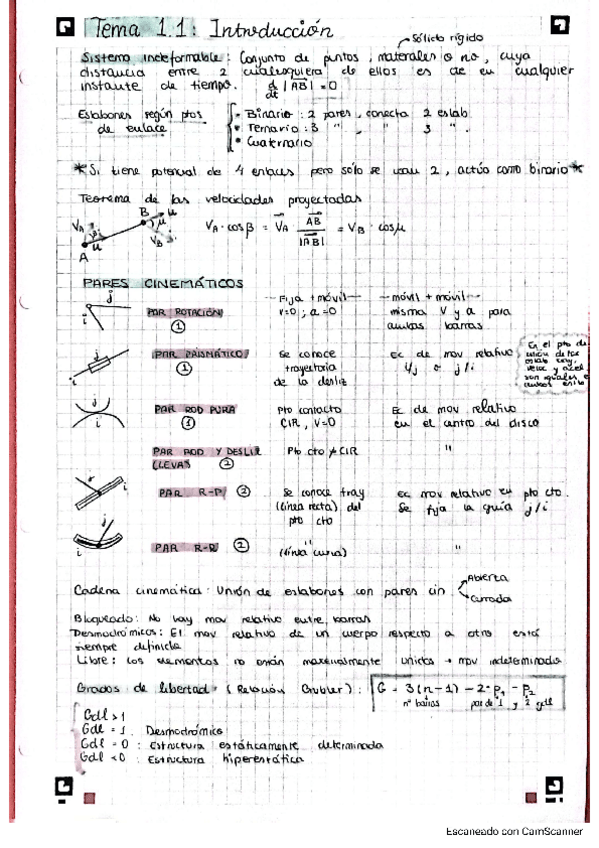 Tema 1.1: Introducción
Sólido rígido
Sistema indeformable: Conjunto de puntos, materiales o no, cuya
distancia entre 2 cualesquiera de ellos es cte en cualquier
instante de tiempo. d/dt |AB| = 0
Eslabones según ptos de enlace
• Binario: 2 pares, conecta 2 eslab
• Ternario: 3 " , " 3 " .
• Cuaternario
* Si tiene potencial de 4 enlaces pero sólo se usan 2, actúa como binario *
Teorema de las velocidades proyectadas
V_A · cos β = V_A AB/|AB| = V_B · cos μ
A B u u V_A V_B β μ
PARES CINEMÁTICOS
Fija + móvil móvil + móvil
i j PAR ROTACIÓN ① v=0 ; a=0 misma V y a para ambas barras.
i j PAR PRISMÁTICO ① Se conoce trayectoria de la desliz Ec de mov relativo i/j o j/i
En el pto de
son iguales
i j PAR ROD PURA ① Pto contacto CIR, V=0 Ec de mov relativo en el centro del disco
PAR ROD Y DESLIZ (LEVAS ② Pto cto ≠ CIR "
i PAR R-P ② Se conoce tray (línea recta) del pto cto Ec mov relativo en pto cto. Se fija la guía j/i
i j PAR R-R ② (línea curva) "
Cadena cinemática: Unión de eslabones con pares cin
Abierta
Cerrada
Bloqueado: No hay mov relativo entre barras
Desmodrómicos: El mov relativo de un cuerpo respecto a otro está
siempre definido
Libre: Los elementos no están materialmente unidos → mov indeterminado
Grados de libertad: (Relación Grubler): G = 3(n-1) - 2·p₁ - p₂
nº barras par de 1 y 2 gdl
Gdl > 1
Gdl = 1. Desmodrómico
Gdl = 0: Estructura estáticamente determinada
Gdl < 0: Estructura hiperestática
Escaneado con CamScanner